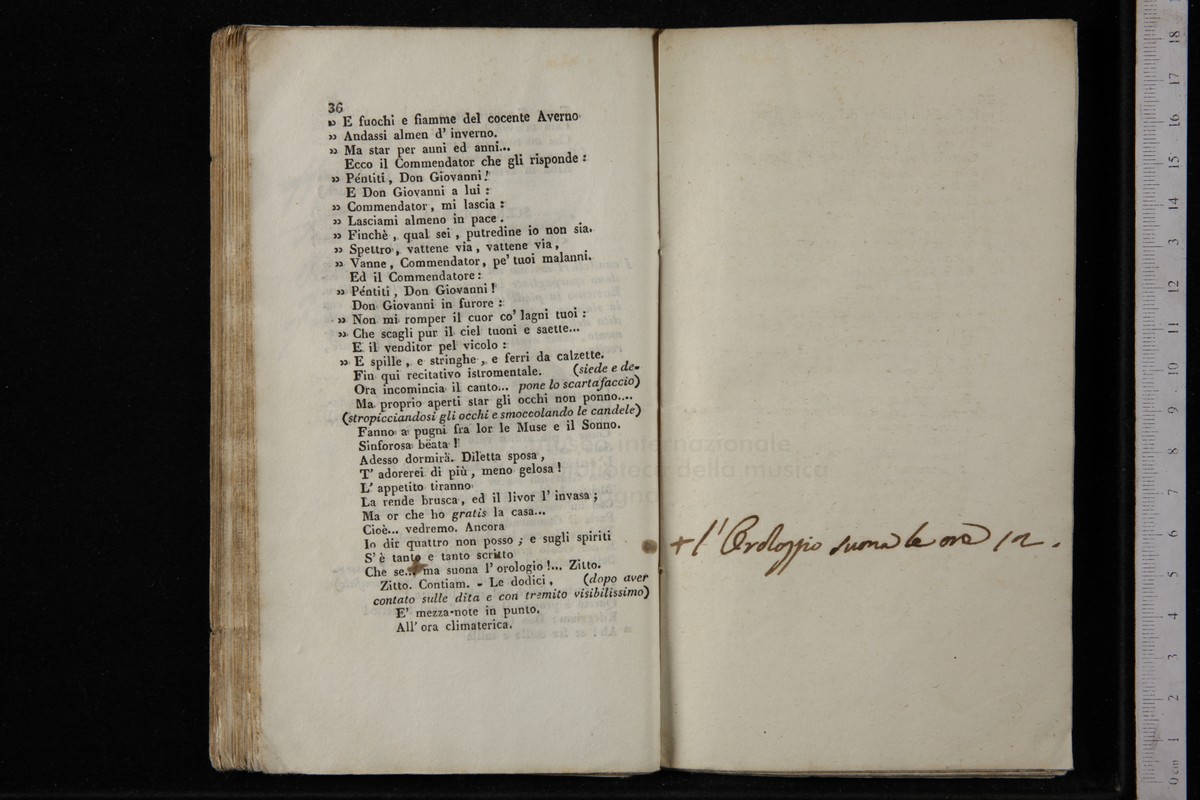 36
» E fuochi e fiamme del cocente Averno
» Andassi almen d' inverno.
» Ma star per anni ed anni...
Ecco il Commendator che gli risponde :
» Péntiti, Don Giovanni!
E Don Giovanni a lui :
» Commendator, mi lascia :
» Lasciami almeno in pace.
» Finchè, qual sei, putredine io non sia.
» Spettro, vattene via, vattene via,
» Vanne, Commendator, pe' tuoi malanni.
Ed il Commendatore :
» Péntiti, Don Giovanni!
Don Giovanni in furore :
» Non mi romper il cuor co' lagni tuoi :
» Che scagli pur il ciel tuoni e saette...
E il venditor pel vicolo :
» E spille, e stringhe, e ferri da calzette.
Fin qui recitativo istromentale. (siede e de-
Ora incomincia il canto... pone lo scartafaccio)
Ma proprio aperti star gli occhi non ponno....
(stropicciandosi gli occhi e smoccolando le candele)
Fanno a pugni fra lor le Muse e il Sonno.
Sinforosa beata !
Adesso dormirà. Diletta sposa,
T' adorerei di più, meno gelosa !
L' appetito tiranno
La rende brusca, ed il livor l' invasa ;
Ma or che ho gratis la casa...
Cioè... vedremo. Ancora
Io dir quattro non posso ; e sugli spiriti
S' è tanto e tanto scritto
Che se... ma suona l' orologio !... Zitto.
Zitto. Contiam. - Le dodici, (dopo aver
contato sulle dita e con tremito visibilissimo)
E' mezza-note in punto.
All' ora climaterica.
+ l' Orologgio suona le ore 12.
museo internazionale
biblioteca della musica